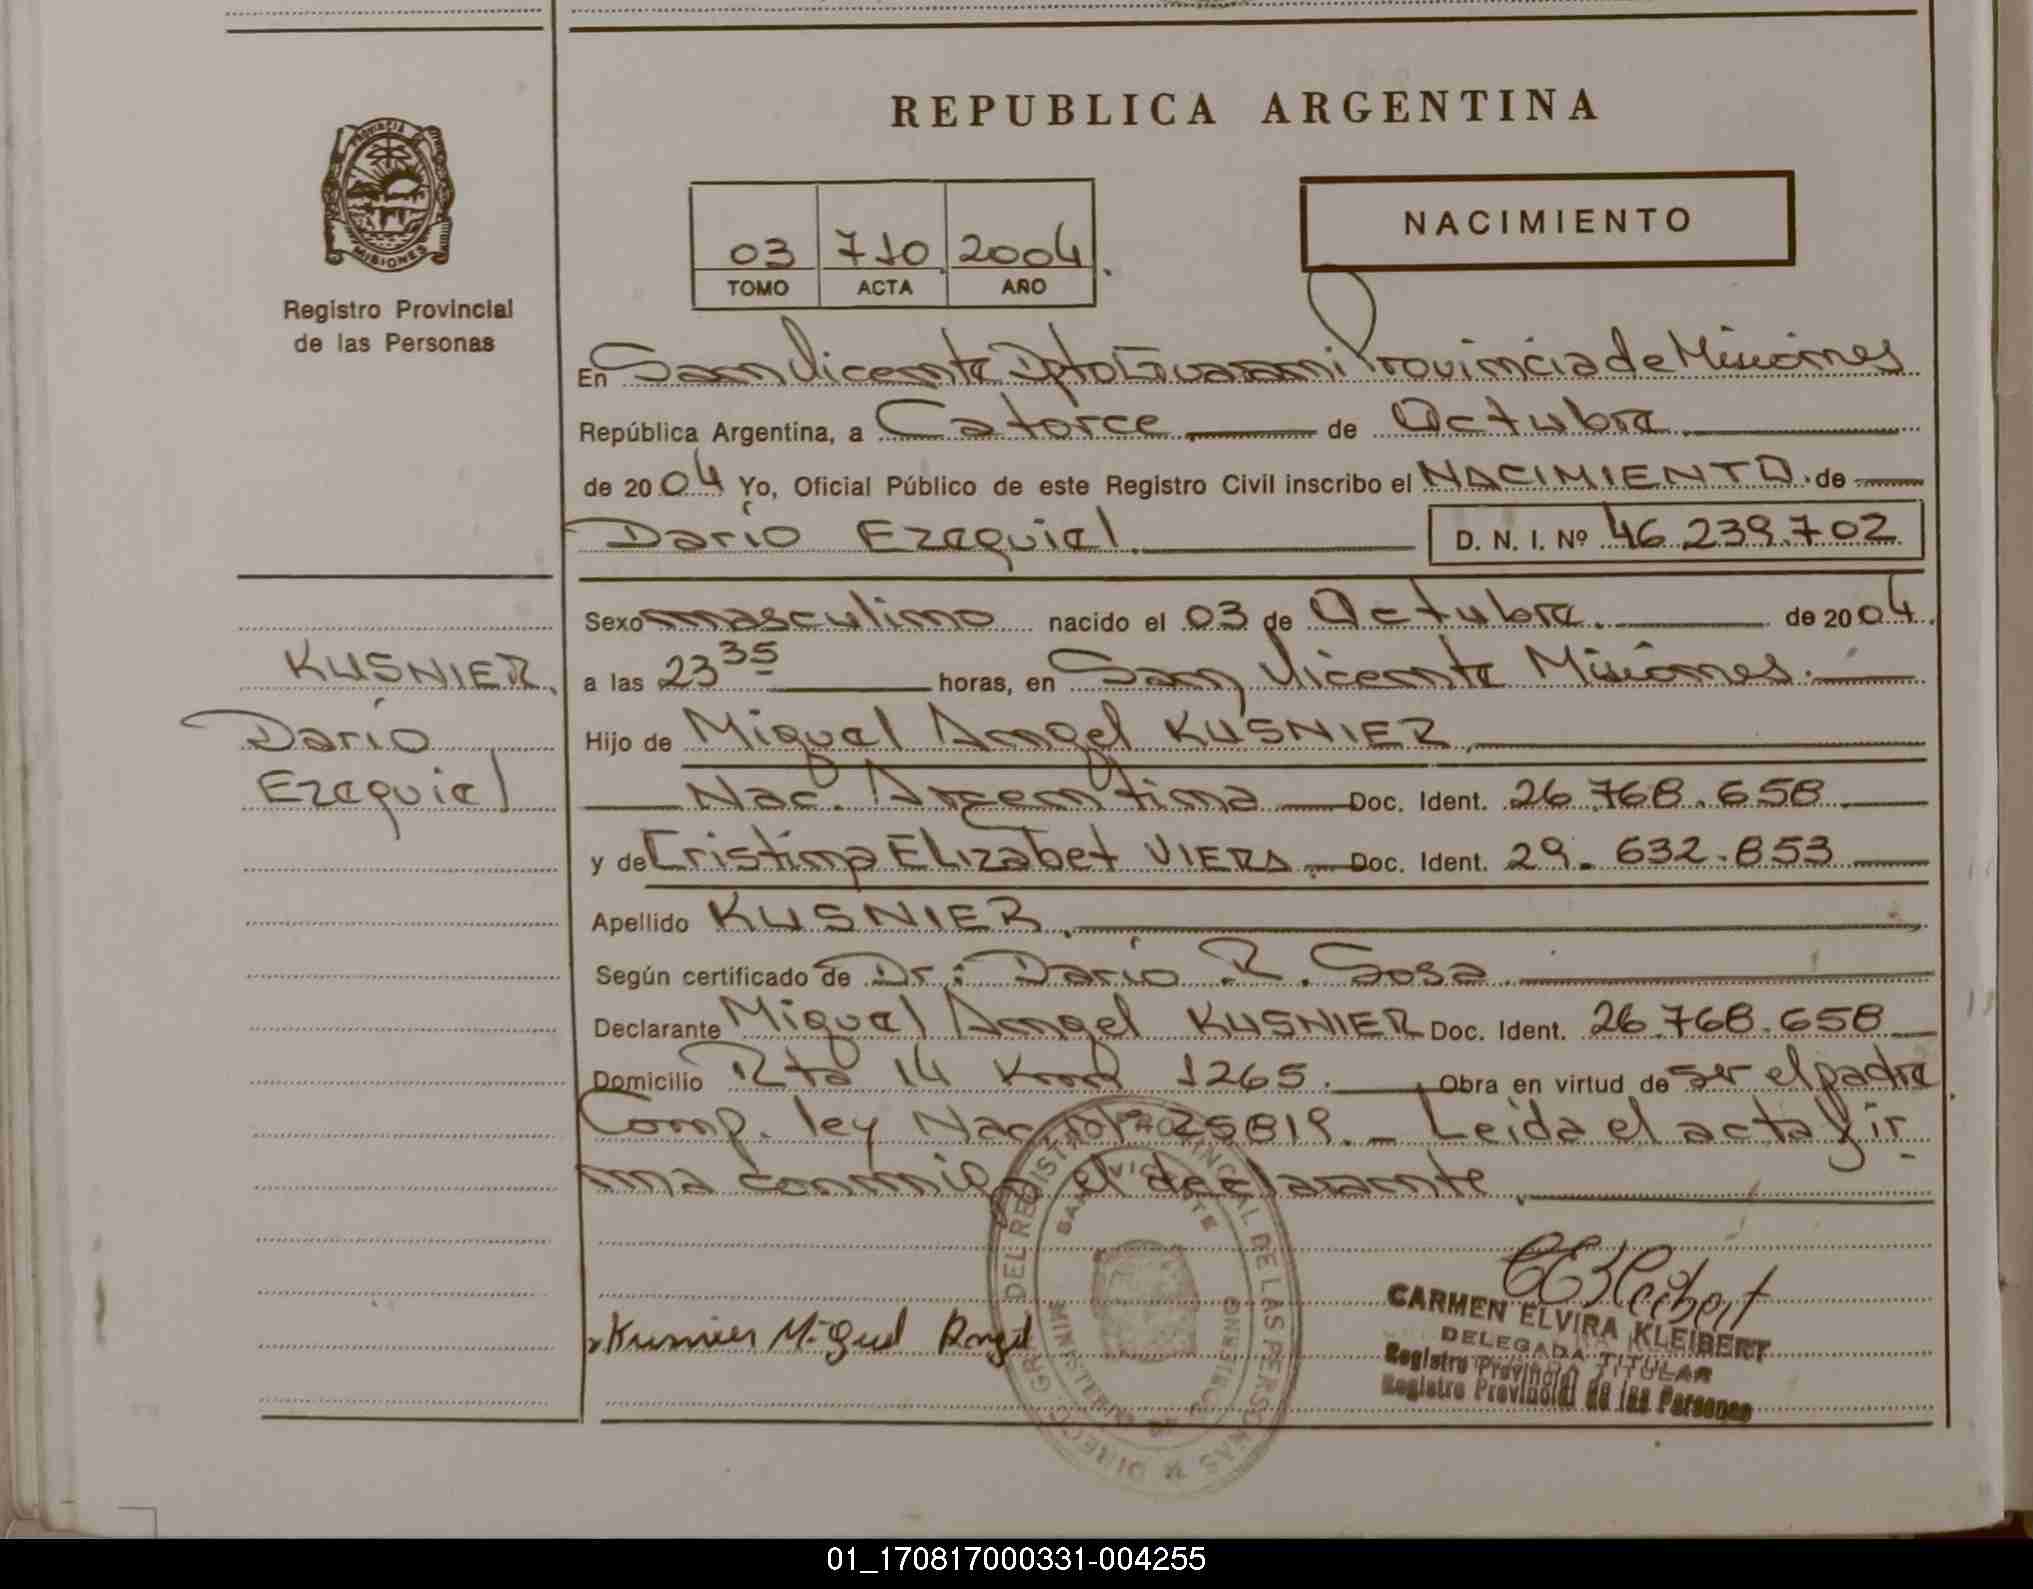 REPUBLICA ARGENTINA
PROVINCIA DE
MISIONES
Registro Provincial
de las Personas
03 710 2004
TOMO ACTA AÑO
NACIMIENTO
En San Vicente Dpto Guarani Provincia de Misiones
República Argentina, a Catorce de Octubre
de 2004 Yo, Oficial Público de este Registro Civil inscribo el NACIMIENTO de
Darío Ezequiel D. N. I. Nº 46.239.702
Sexo masculino nacido el 03 de Octubre de 2004
a las 23 35 horas, en San Vicente Misiones
Hijo de Miguel Angel KUSNIER
Nac. Argentina Doc. Ident. 26.768.658
y de Cristina Elizabet VIERA Doc. Ident. 29.632.853
Apellido KUSNIER
Según certificado de Dr: Darío R. Sosa
Declarante Miguel Angel KUSNIER Doc. Ident. 26.768.658
Domicilio Rta 14 Km 1265. Obra en virtud de ser el padre
Comp. ley Nac. 25819. Leida el acta fir
ma conmigo el declarante
KUSNIER,
Darío
Ezequiel
Kusnier Miguel Angel
DEL REGISTRO PROVINCIAL DE LAS PERSONAS
SAN VICENTE
MINISTERIO DE GOBIERNO
CARMEN ELVIRA KLEIBERT
DELEGADA TITULAR
Registro Provincial de las Personas
01_170817000331-004255